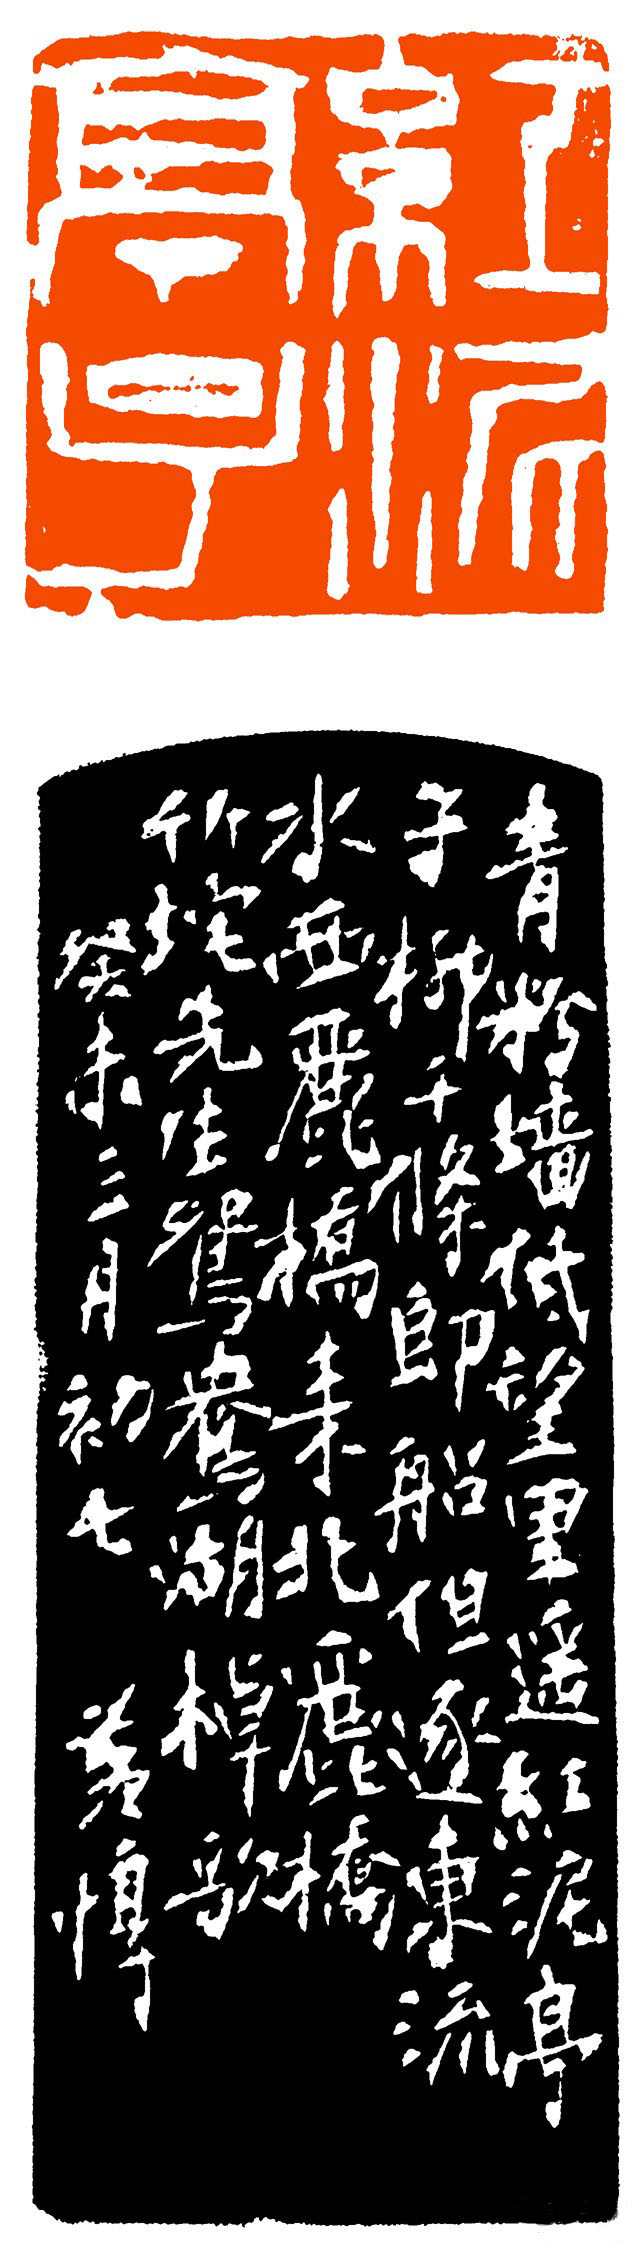 紅泥
亭子
青粉墙低望里遥紅泥亭
子柳千條郎船但逐東流
水西麗橋来北麗橋
竹垞先生鴛鴦湖棹歌
癸未三月初七 惇